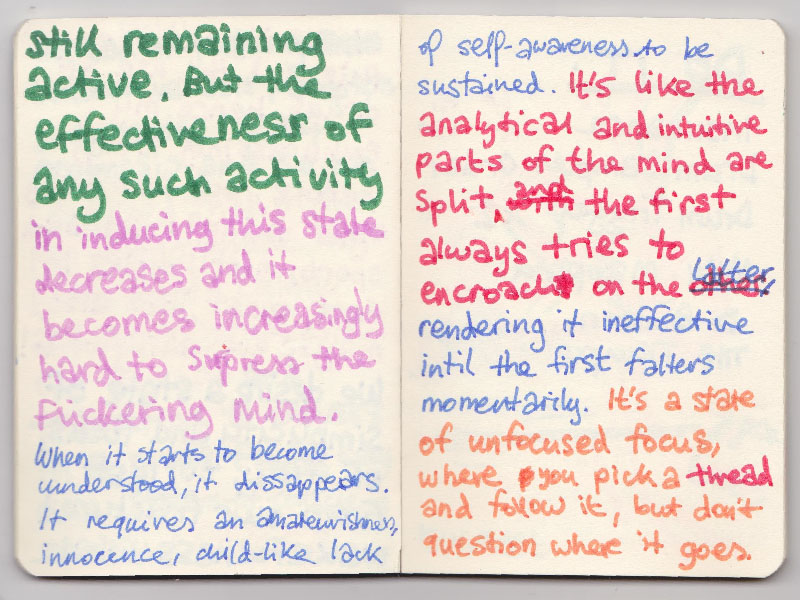 still remaining
active. But the
effectiveness of
any such activity
in inducing this state
decreases and it
becomes increasingly
hard to supress the
fuckering mind.
When it starts to become
understood, it dissappears.
It requires an amateurishness,
innocence, child-like lack
of self-awareness to be
sustained. It's like the
analytical and intuitive
parts of the mind are
split, and the first
always tries to
encroach on the latter,
rendering it ineffective
intil the first falters
momentarily. It's a state
of unfocused focus,
where you pick a thread
and follow it, but don't
question where it goes.